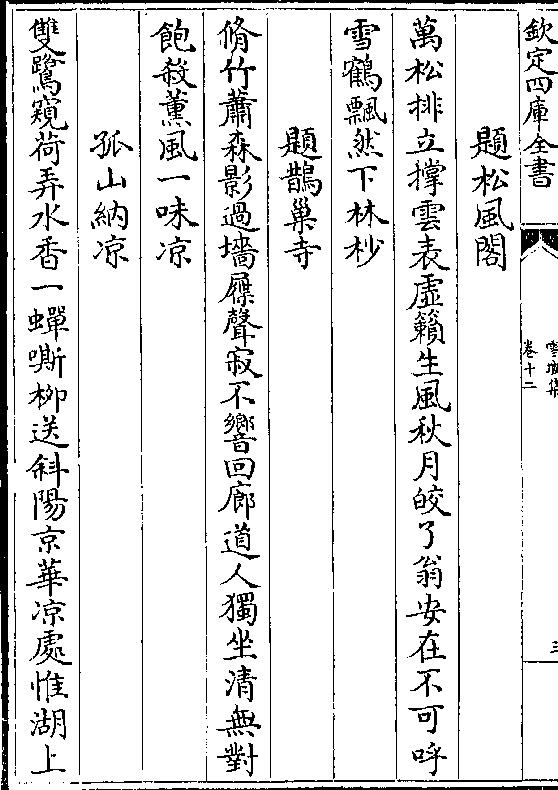 欽定四庫全書
卷十二
三
題松風閣
萬松排立撑雲表虛籟生風秋月皎了翁安在不可呼
雪鶴飄然下林杪
題鵲巢寺
脩竹蕭森影過墻屧聲寂不響回廊道人獨坐清無對
飽殺薰風一味凉
孤山納凉
雙鷺窺荷弄水香一蟬嘶柳送斜陽京華凉處惟湖上